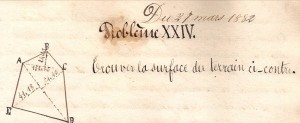 Du 27 mars 1882
Problème XXIV.
Trouver la surface du terrain ci-contre.
B
A
C
E
D